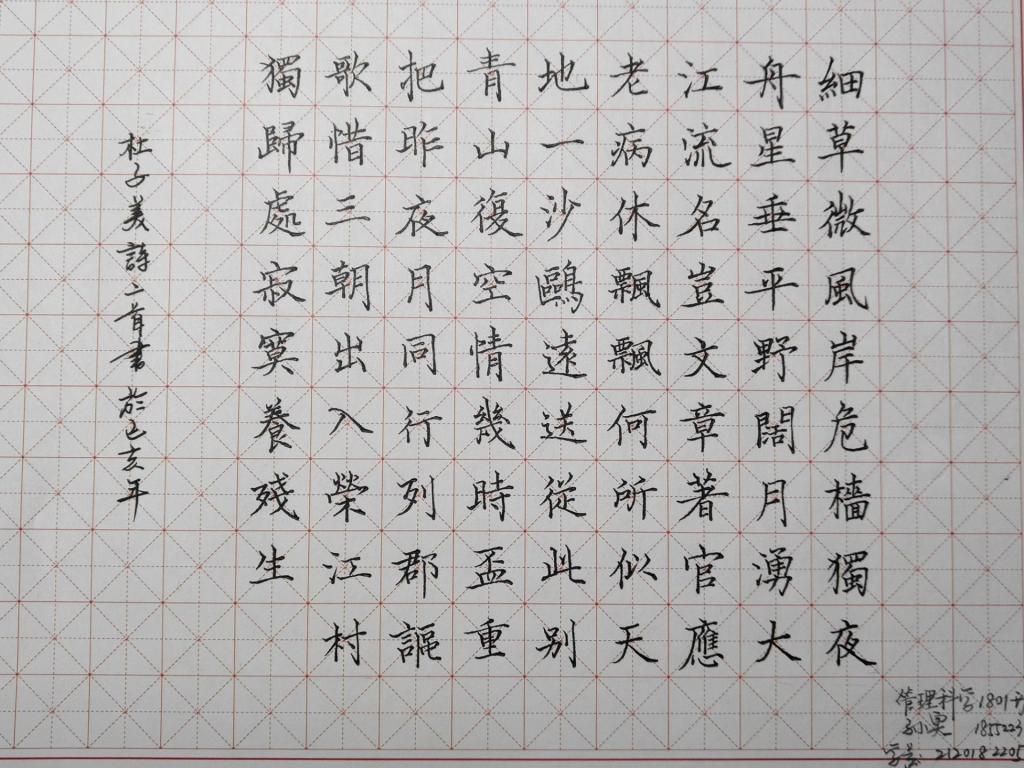 細草微風岸危檣獨夜
舟星垂平野闊月湧大
江流名豈文章著官應
老病休飄飄何所似天
地一沙鷗遠送從此别
青山復空情幾時盃重
把昨夜月同行列郡謳
歌惜三朝出入榮江村
獨歸處寂寞養殘生
杜子美詩二首書於己亥年
管理科学1801
185522
学号: 2120182205